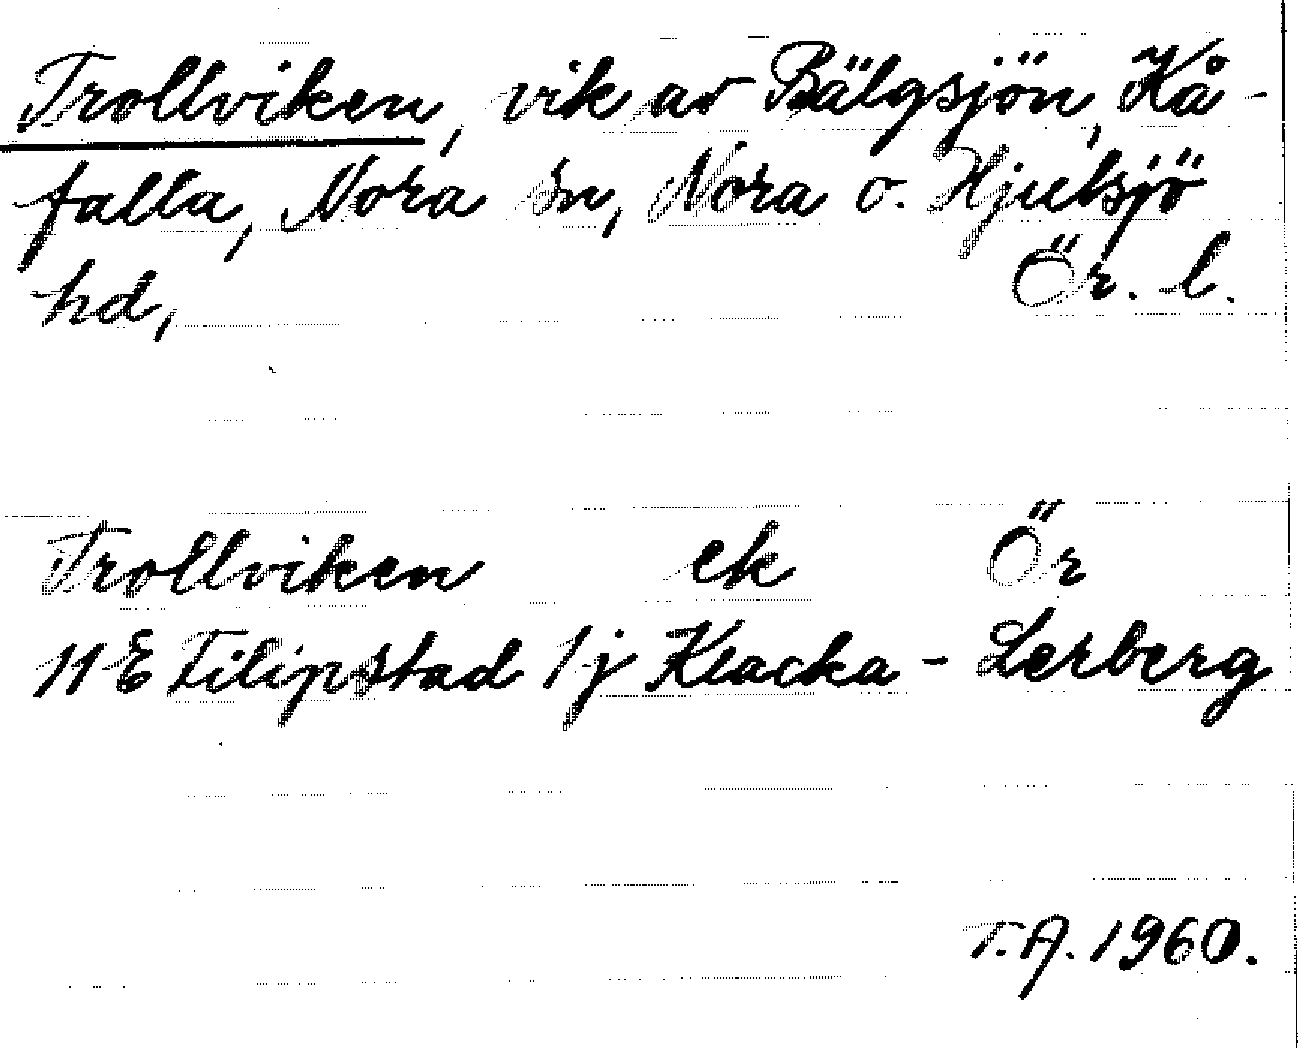 Trollviken, vik av Bälgsjön, Kå-
falla, Nora sn, Nora o. Hjulsjö
hd, Ör. l.
Trollviken ek Ör
11 E Filipstad 1j Klacka - Lerberg
T.A. 1960.